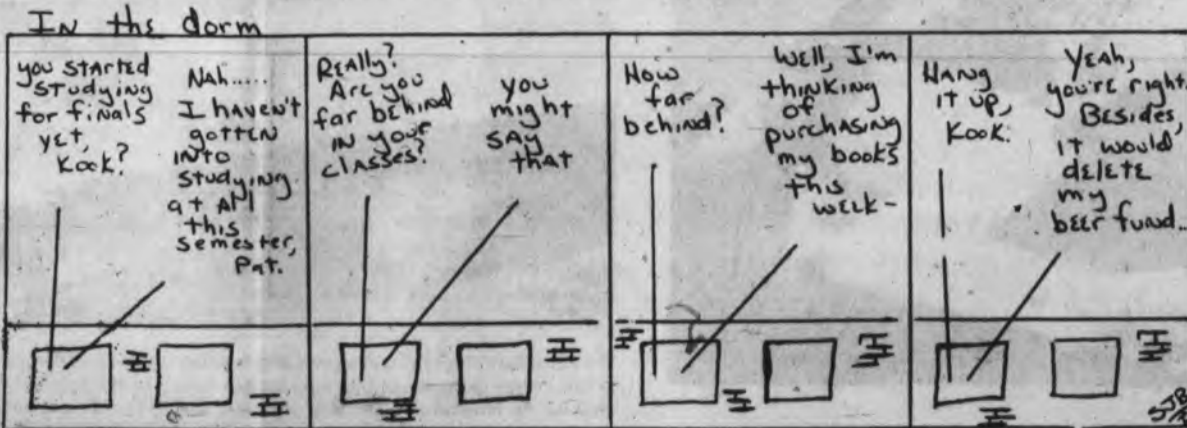 In the dorm
you started
studying
for finals
yet,
Kook?
Nah.....
I haven't
gotten
into
studying
at all
this
semester,
Pat.
Really?
Are you
far behind
in your
classes?
you
might
say
that
How
far
behind?
Well, I'm
thinking
of
purchasing
my books
this
week-
Hang
it up,
Kook.
Yeah,
you're right.
Besides,
it would
delete
my
beer fund...
SJB